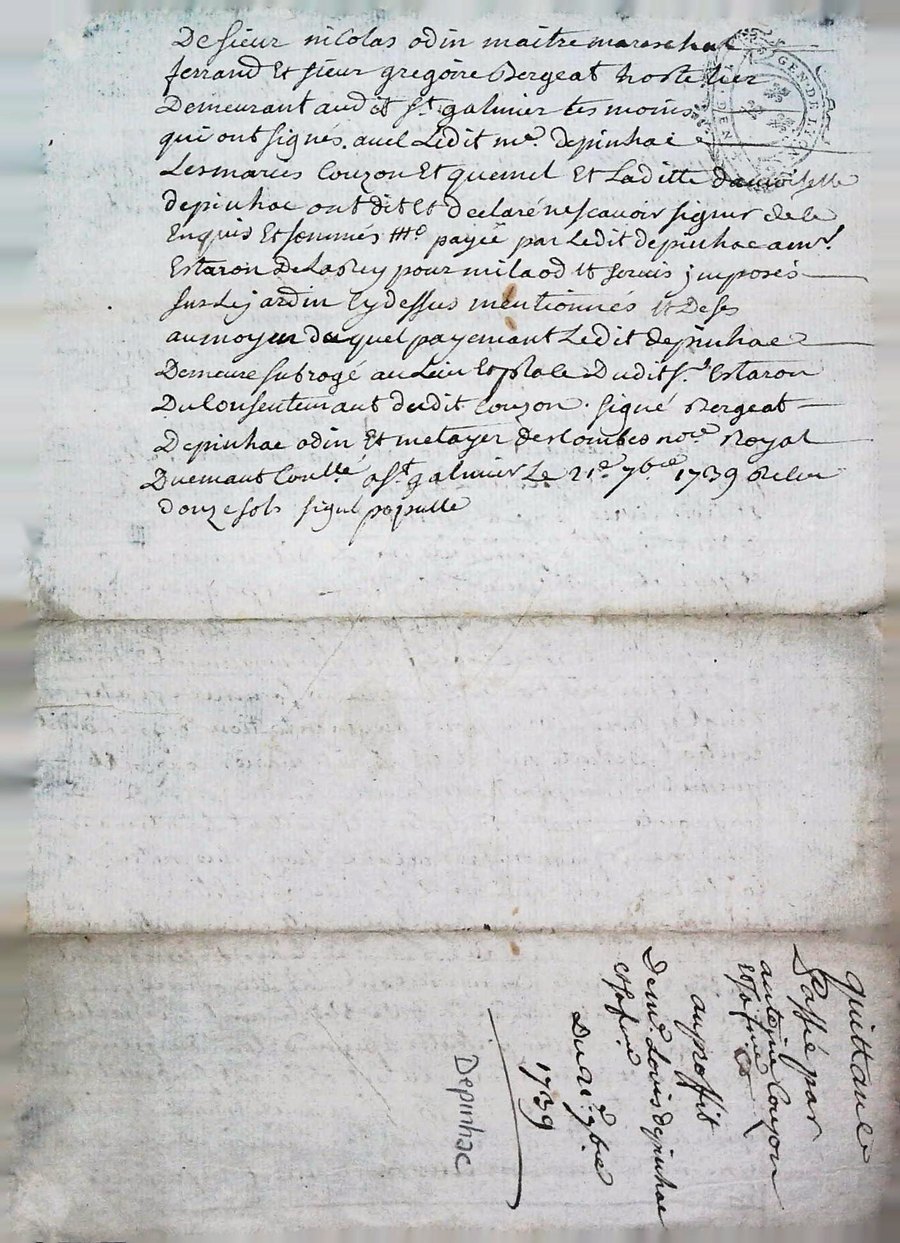 De sieur nicolas odin maitre mareschal
ferrand Et sieur gregoire Bergeat hostelier
Demeurant audit st. galmier tesmoins
qui ont signés. avec Ledit me. depinhac
Les mariés Couzon Et quemel Et Laditte damoiselle
depinhac ont dit Et declaré ne scavoir signer de ce
Enquis Et sommés payée par Ledit depinhac a
Estaron De pour milaod Et servis jmposés
sur Le jardin Cy dessus mentionnés Et De ses
au moyen duquel payemant Ledit depinhac
Demeure subrogé au Lieu Et place Dudit sr. Estaron
Du Consentemant dudit Couzon. signé Bergeat
Depinhac odin Et metayer descombes nore. Royal
Duemant Conlle. a St. galmier Le 21e. 7bre 1739 Receu
douze sols signé populle
GEN. DE
quittance
Passé par
antoine Couzon
Et sa fme
au proffit
De me. Louis depinhac
Et sa fme
Du 21e. 7bre
1739
Depinhac